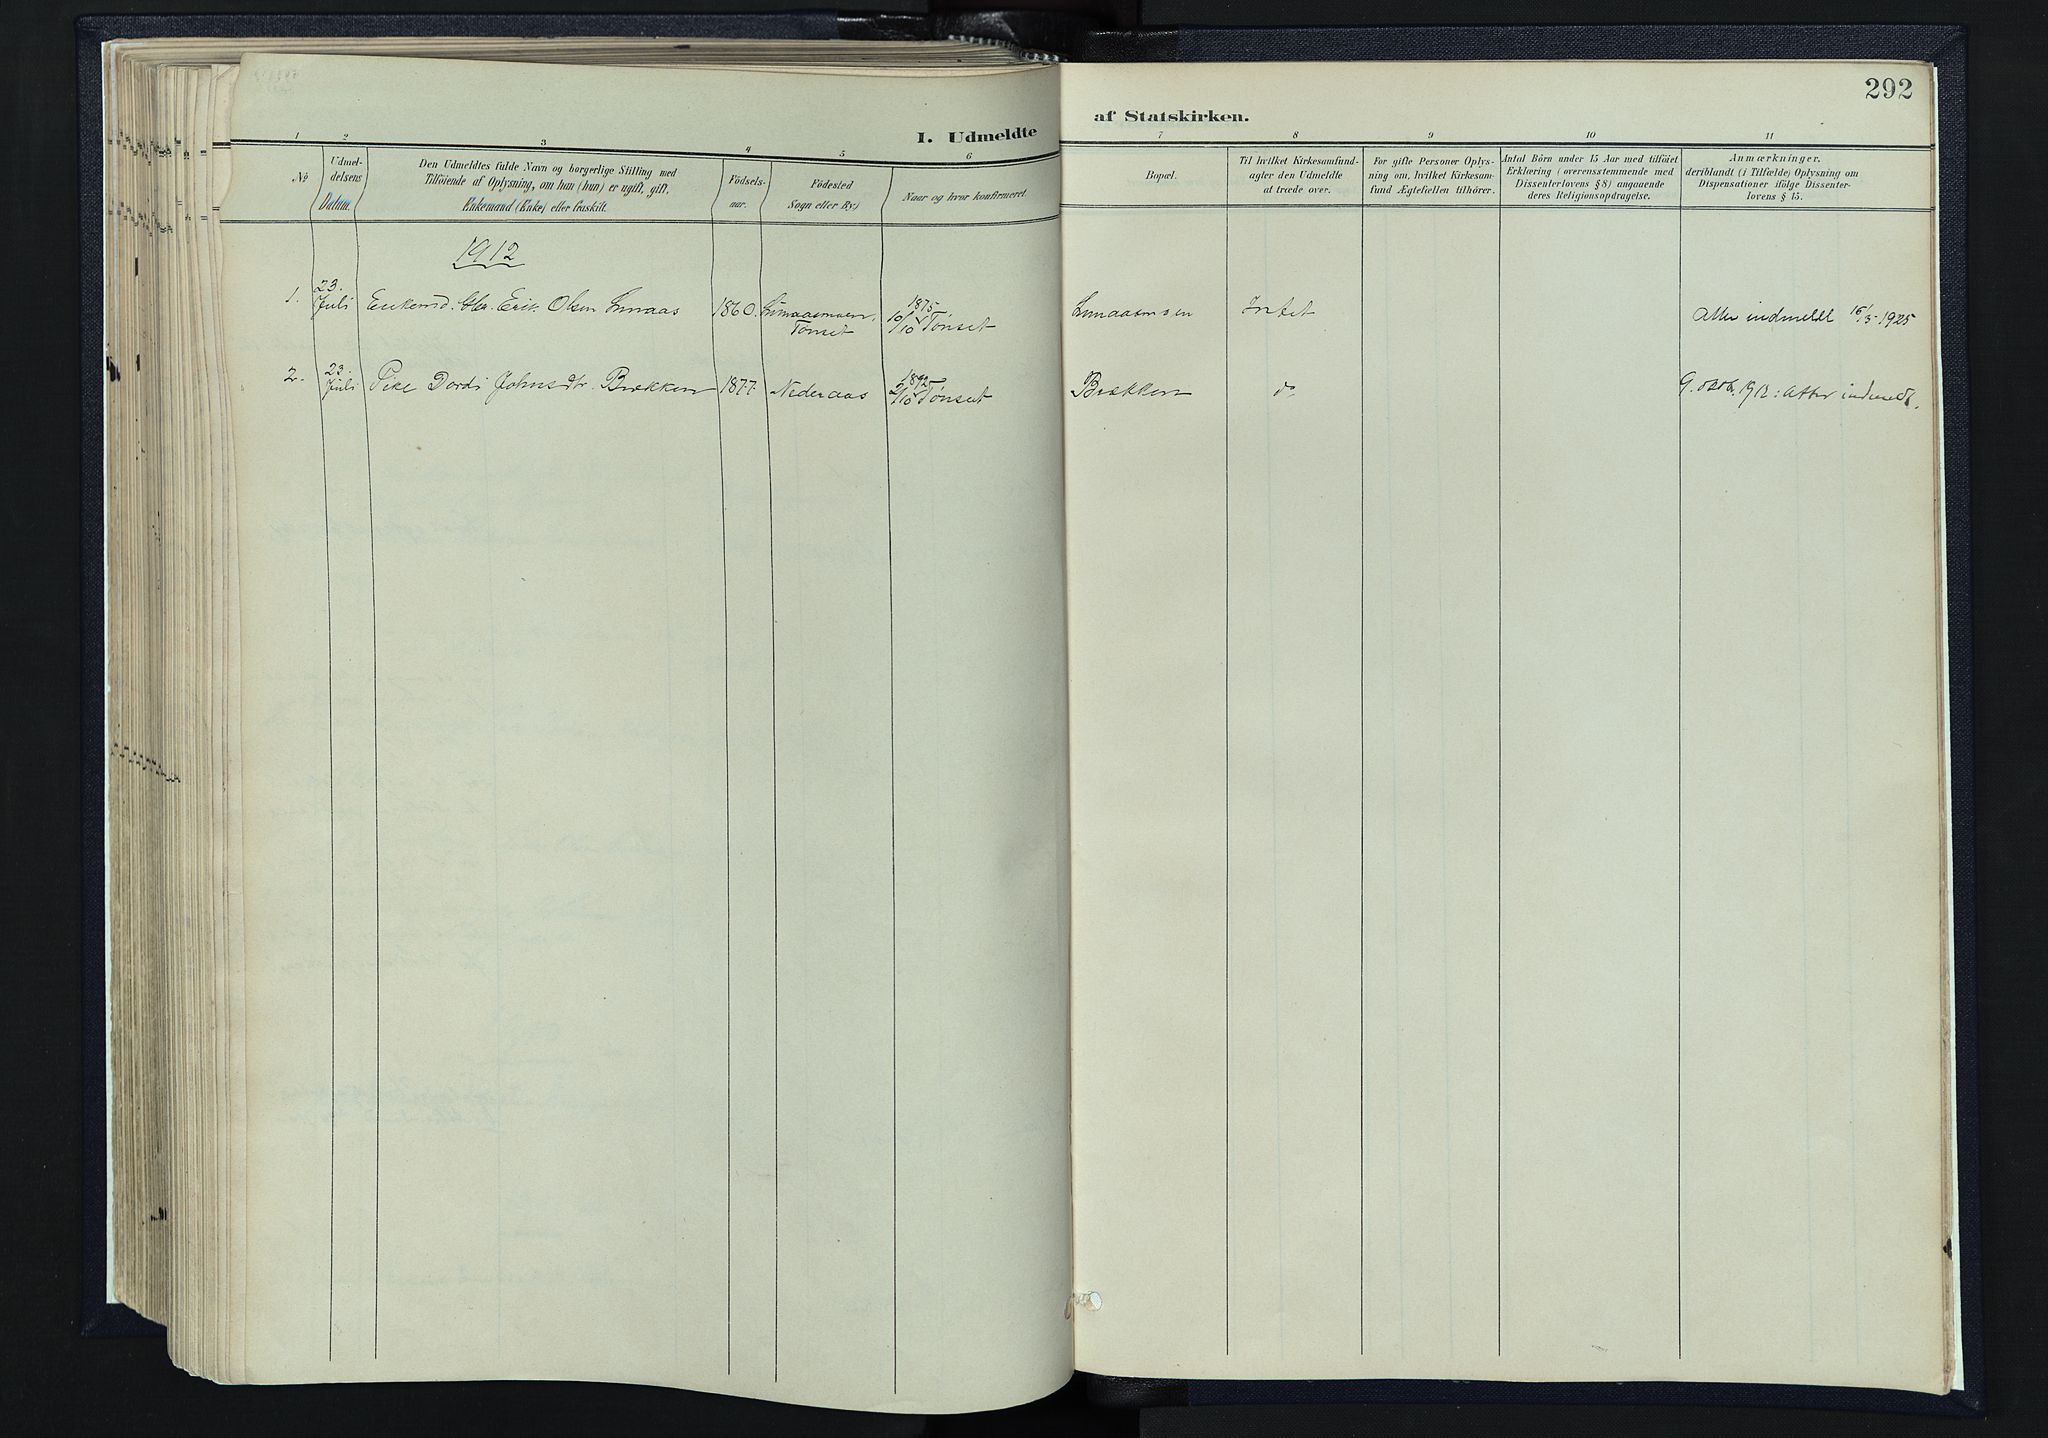 292
I. Udmeldte af Statskirken.
1 2 3 4 5 6 7 8 9 10 11
No
Udmel-
delsens
Datum.
Den Udmeldtes fulde Navn og borgerlige Stilling med
Tilföiende af Oplysning, om han (hun) er ugift, gift,
Enkemand (Enke) eller fraskilt.
Födsels-
aar.
Födested
Sogn eller By)
Naar og hvor konfirmeret.
Bopæl.
Til hvilket Kirkesamfund
agter den Udmeldte
at træde over.
For gifte Personer Oplys-
ning om, hvilket Kirkesam-
fund Ægtefællen tilhörer.
Antal Börn under 15 Aar med tilföiet
Erklæring (overensstemmende med
Dissenterlovens § 8) angaaende
deres Religionsopdragelse.
Anmærkninger,
deriblandt (i Tilfælde) Oplysning om
Dispensationer ifölge Dissenter-
lovens § 15.
1912
1.
23.
Juli
Enkemd. Gbr. Erik Olsen
1860.
Tönset
1875
10/10 Tönset
Intet
Atter indmeldt 16/3-1925
2.
23.
Juli
Pike Dordi Johnsdtr. Brækken
1877.
Nederaas
1892
2/10 Tönset
Brækken
do
9. oktb. 1912: Atter indmeldt.